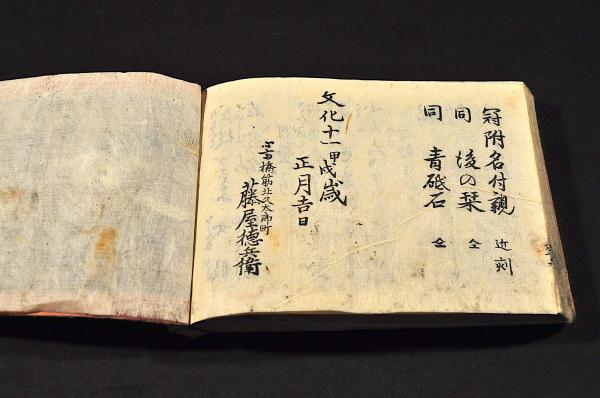 冠附名付親 近刻
同 後の栞 仝
同 青砥石 仝
文化十一甲戌歳
正月吉日
心斎橋筋北久太郎町
藤屋徳兵衛